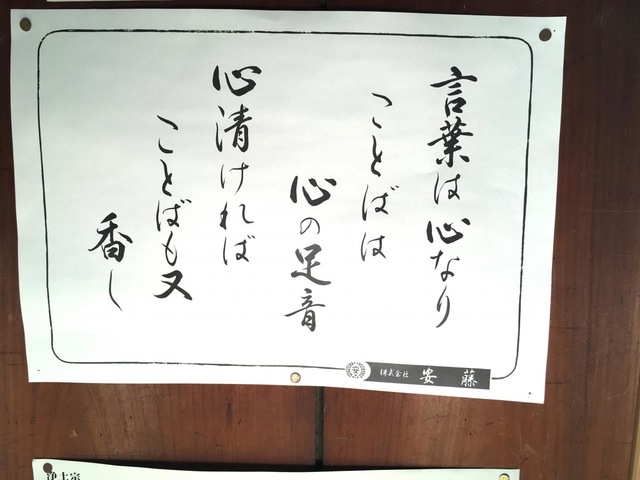 言葉は心なり
ことばは
心の足音
心清ければ
ことばも又
香し
安
株式会社 安藤
浄土宗